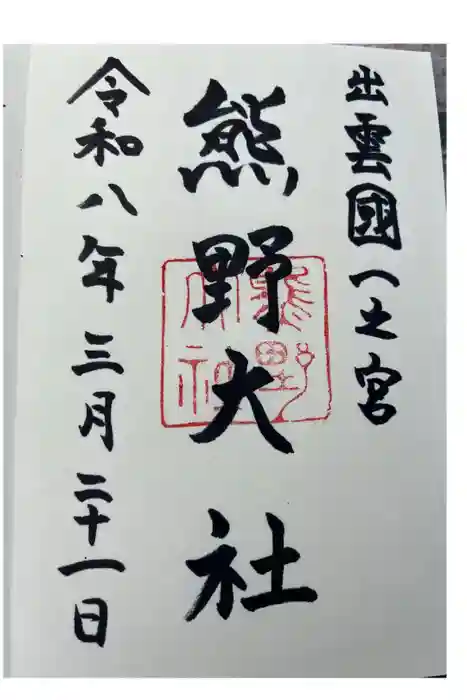 出雲國一之宮
熊野大社
熊野大社
令和八年三月二十一日